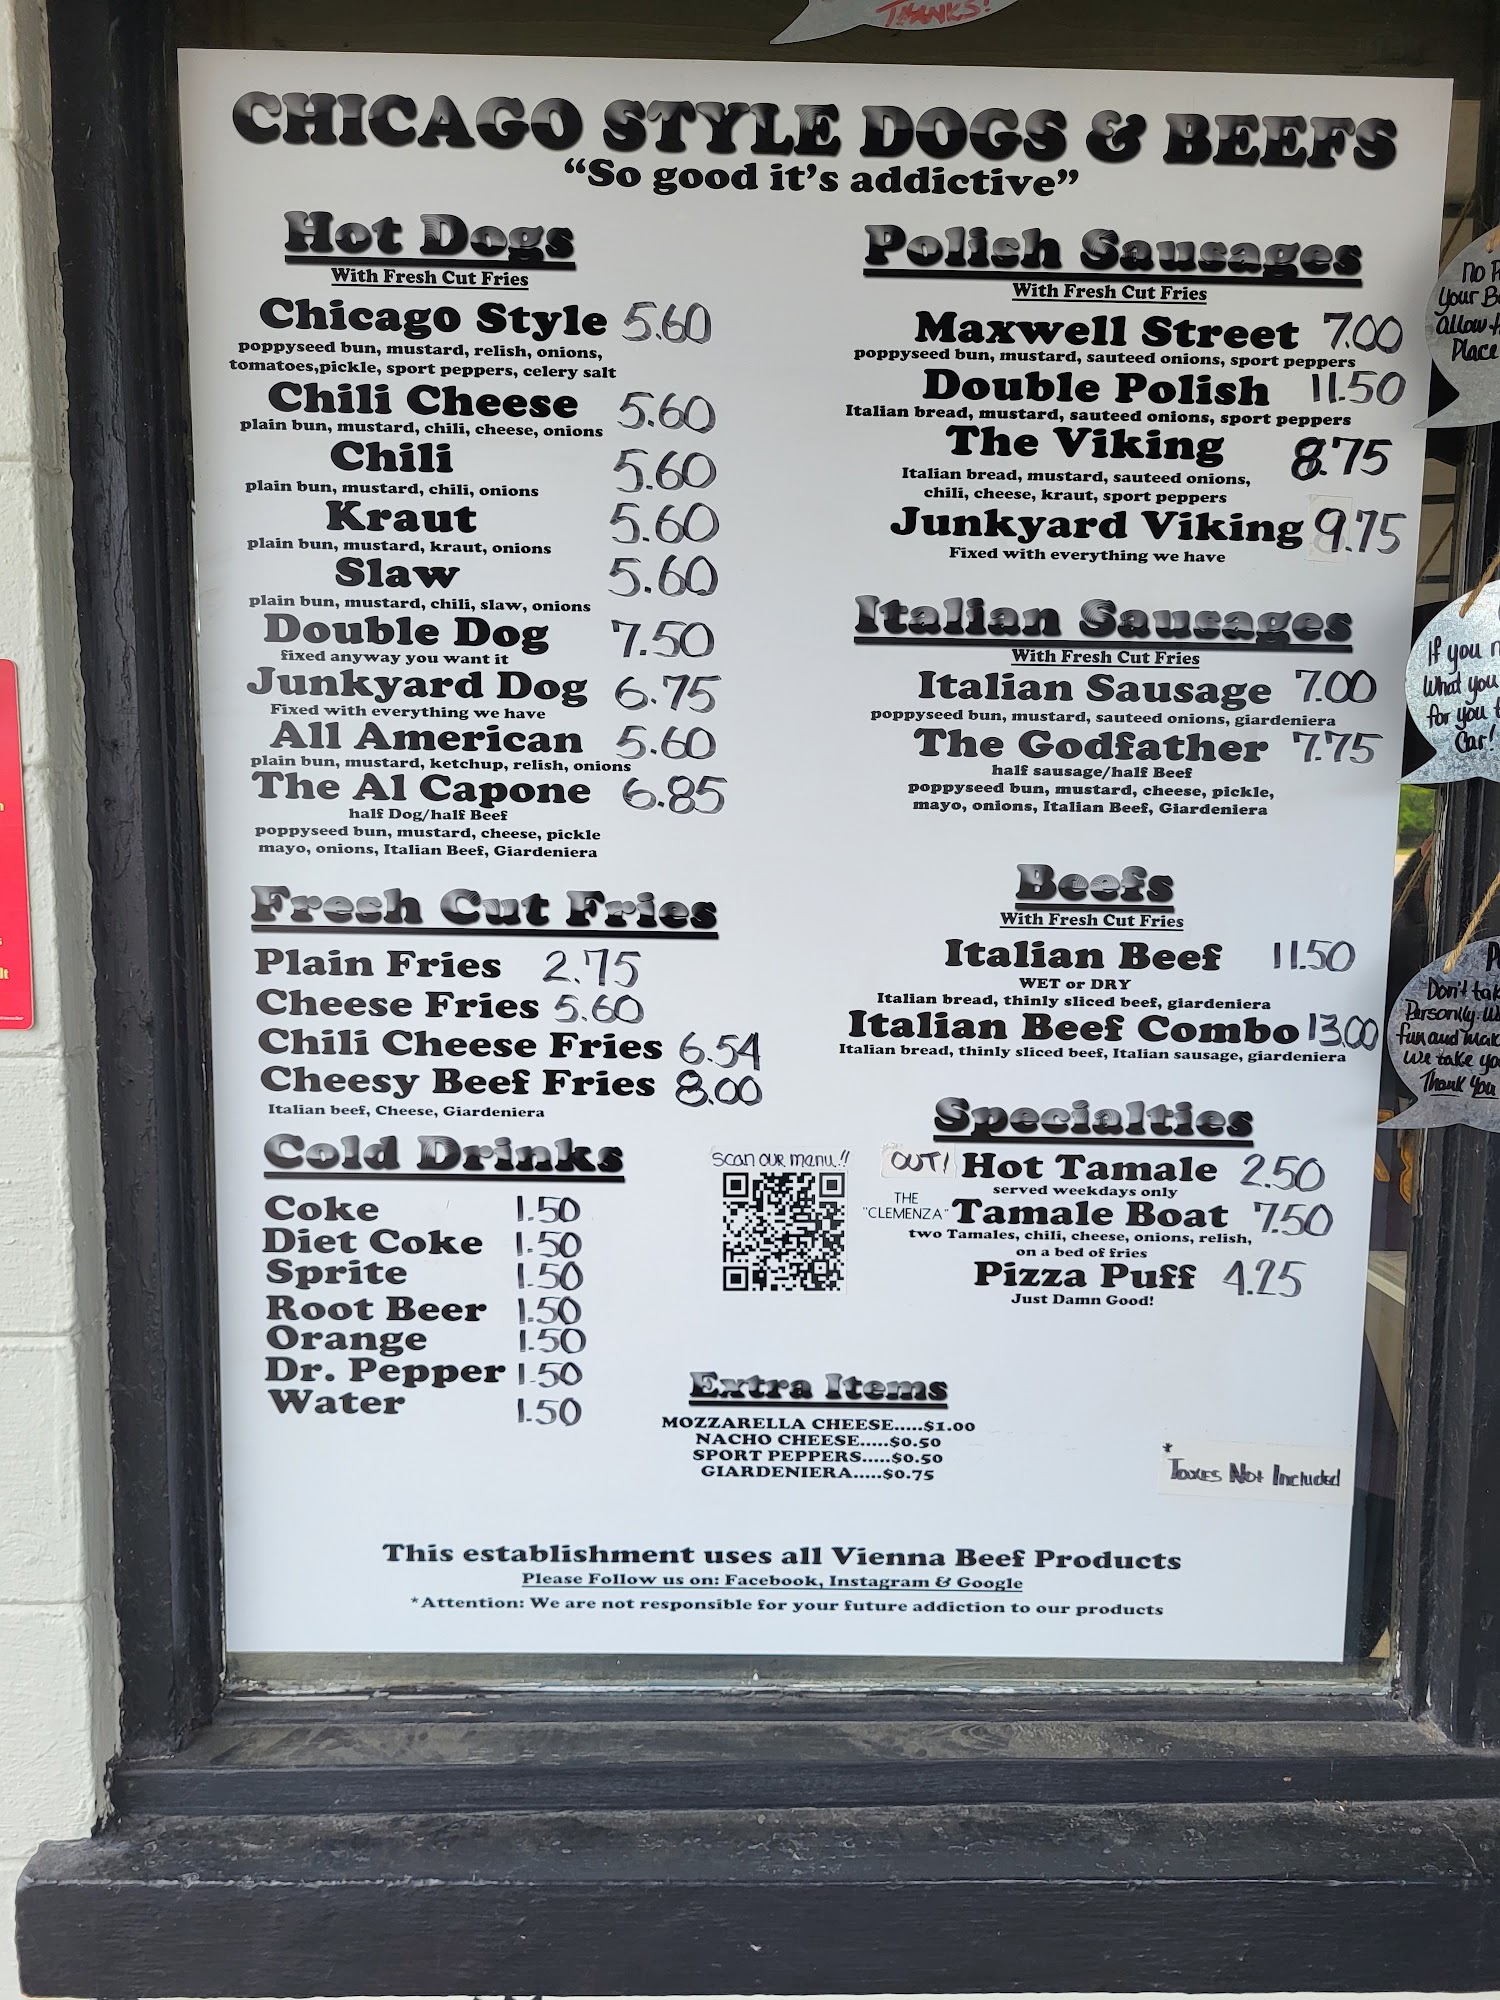 THANKS!
CHICAGO STYLE DOGS & BEEFS
“So good it’s addictive”
Hot Dogs
With Fresh Cut Fries
Chicago Style 5.60
poppyseed bun, mustard, relish, onions,
tomatoes,pickle, sport peppers, celery salt
Chili Cheese 5.60
plain bun, mustard, chili, cheese, onions
Chili 5.60
plain bun, mustard, chili, onions
Kraut 5.60
plain bun, mustard, kraut, onions
Slaw 5.60
plain bun, mustard, chili, slaw, onions
Double Dog 7.50
fixed anyway you want it
Junkyard Dog 6.75
Fixed with everything we have
All American 5.60
plain bun, mustard, ketchup, relish, onions
The Al Capone 6.85
half Dog/half Beef
poppyseed bun, mustard, cheese, pickle
mayo, onions, Italian Beef, Giardeniera
Fresh Cut Fries
Plain Fries 2.75
Cheese Fries 5.60
Chili Cheese Fries 6.54
Cheesy Beef Fries 8.00
Italian beef, Cheese, Giardeniera
Cold Drinks
Coke 1.50
Diet Coke 1.50
Sprite 1.50
Root Beer 1.50
Orange 1.50
Dr. Pepper 1.50
Water 1.50
Polish Sausages
With Fresh Cut Fries
Maxwell Street 7.00
poppyseed bun, mustard, sauteed onions, sport peppers
Double Polish 11.50
Italian bread, mustard, sauteed onions, sport peppers
The Viking 8.75
Italian bread, mustard, sauteed onions,
chili, cheese, kraut, sport peppers
Junkyard Viking 9.75
Fixed with everything we have
Italian Sausages
With Fresh Cut Fries
Italian Sausage 7.00
poppyseed bun, mustard, sauteed onions, giardeniera
The Godfather 7.75
half sausage/half Beef
poppyseed bun, mustard, cheese, pickle,
mayo, onions, Italian Beef, Giardeniera
Beefs
With Fresh Cut Fries
Italian Beef 11.50
WET or DRY
Italian bread, thinly sliced beef, giardeniera
Italian Beef Combo 13.00
Italian bread, thinly sliced beef, Italian sausage, giardeniera
Specialties
OUT! Hot Tamale 2.50
served weekdays only
THE
"CLEMENZA" Tamale Boat 7.50
two Tamales, chili, cheese, onions, relish,
on a bed of fries
Pizza Puff 4.25
Just Damn Good!
scan our menu!!
Extra Items
MOZZARELLA CHEESE.....$1.00
NACHO CHEESE.....$0.50
SPORT PEPPERS.....$0.50
GIARDENIERA.....$0.75
* Taxes Not Included
This establishment uses all Vienna Beef Products
Please Follow us on: Facebook, Instagram & Google
*Attention: We are not responsible for your future addiction to our products
no
your
allow
Place
If you
What you
for you
Car!
Don't
Personly.
fun and
we take
Thank you